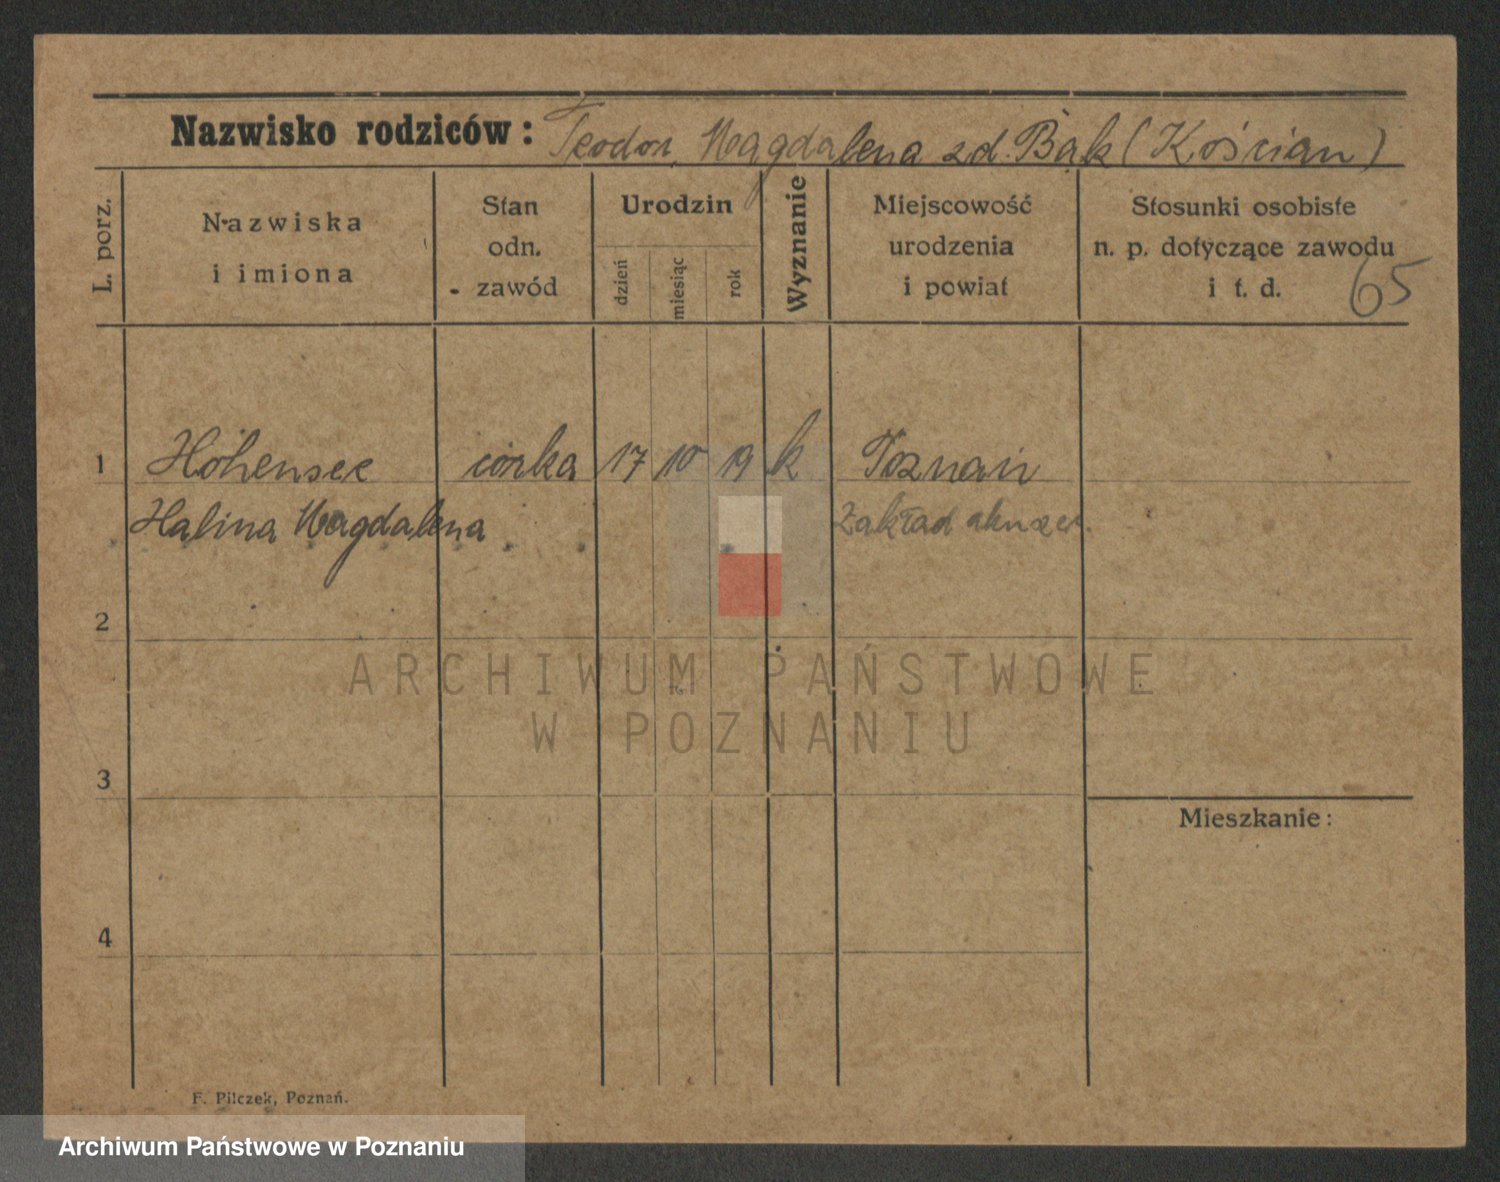 Nazwisko rodziców: Teodor, Magdalena zd. Bąk (Kościan)
L. porz.
Nazwiska
i imiona
Stan
odn.
zawód
Urodzin
dzień
miesiąc
rok
Wyznanie
Miejscowość
urodzenia
i powiat
Stosunki osobiste
n. p. dotyczące zawodu
i t. d.
65
1 Hohensee córka 17 10 19 k Poznań
Halina Magdalena Zakład akuszer.
2
ARCHIWUM PAŃSTWOWE
W POZNANIU
3
Mieszkanie:
4
F. Pilczek, Poznań.
Archiwum Państwowe w Poznaniu